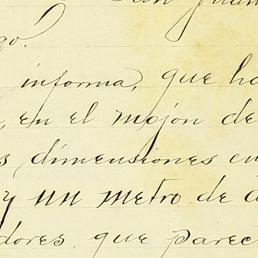 San Juan
go.
informa, que ha
, en el mojón de
s dimensiones en
y un metro de a
dores, que parec